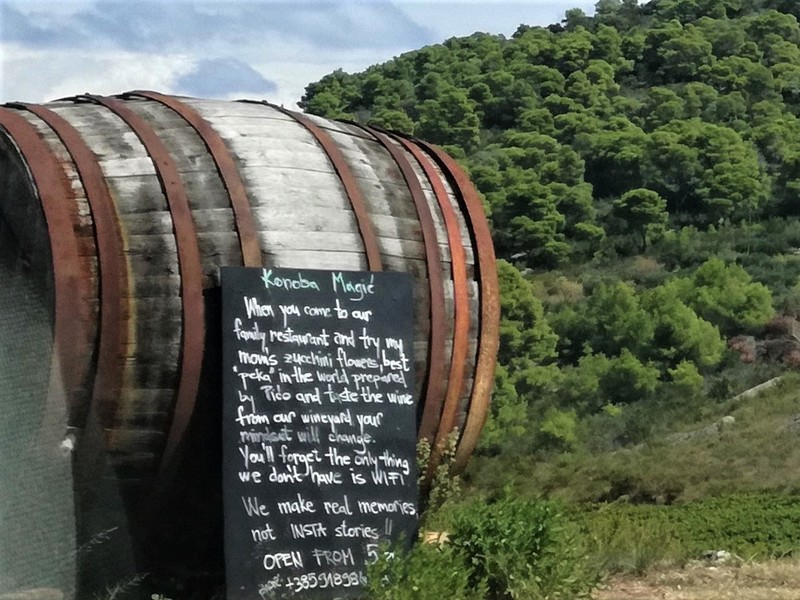 Konoba Magić
When you come to our
family restaurant and try my
mom's zucchini flowers, best
"peka" in the world prepared
by Pico and taste the wine
from our wineyard your
mindset will change.
You'll forget the only thing
we don't have is WIFI
We make real memories,
not INSTA stories!!
OPEN FROM 5